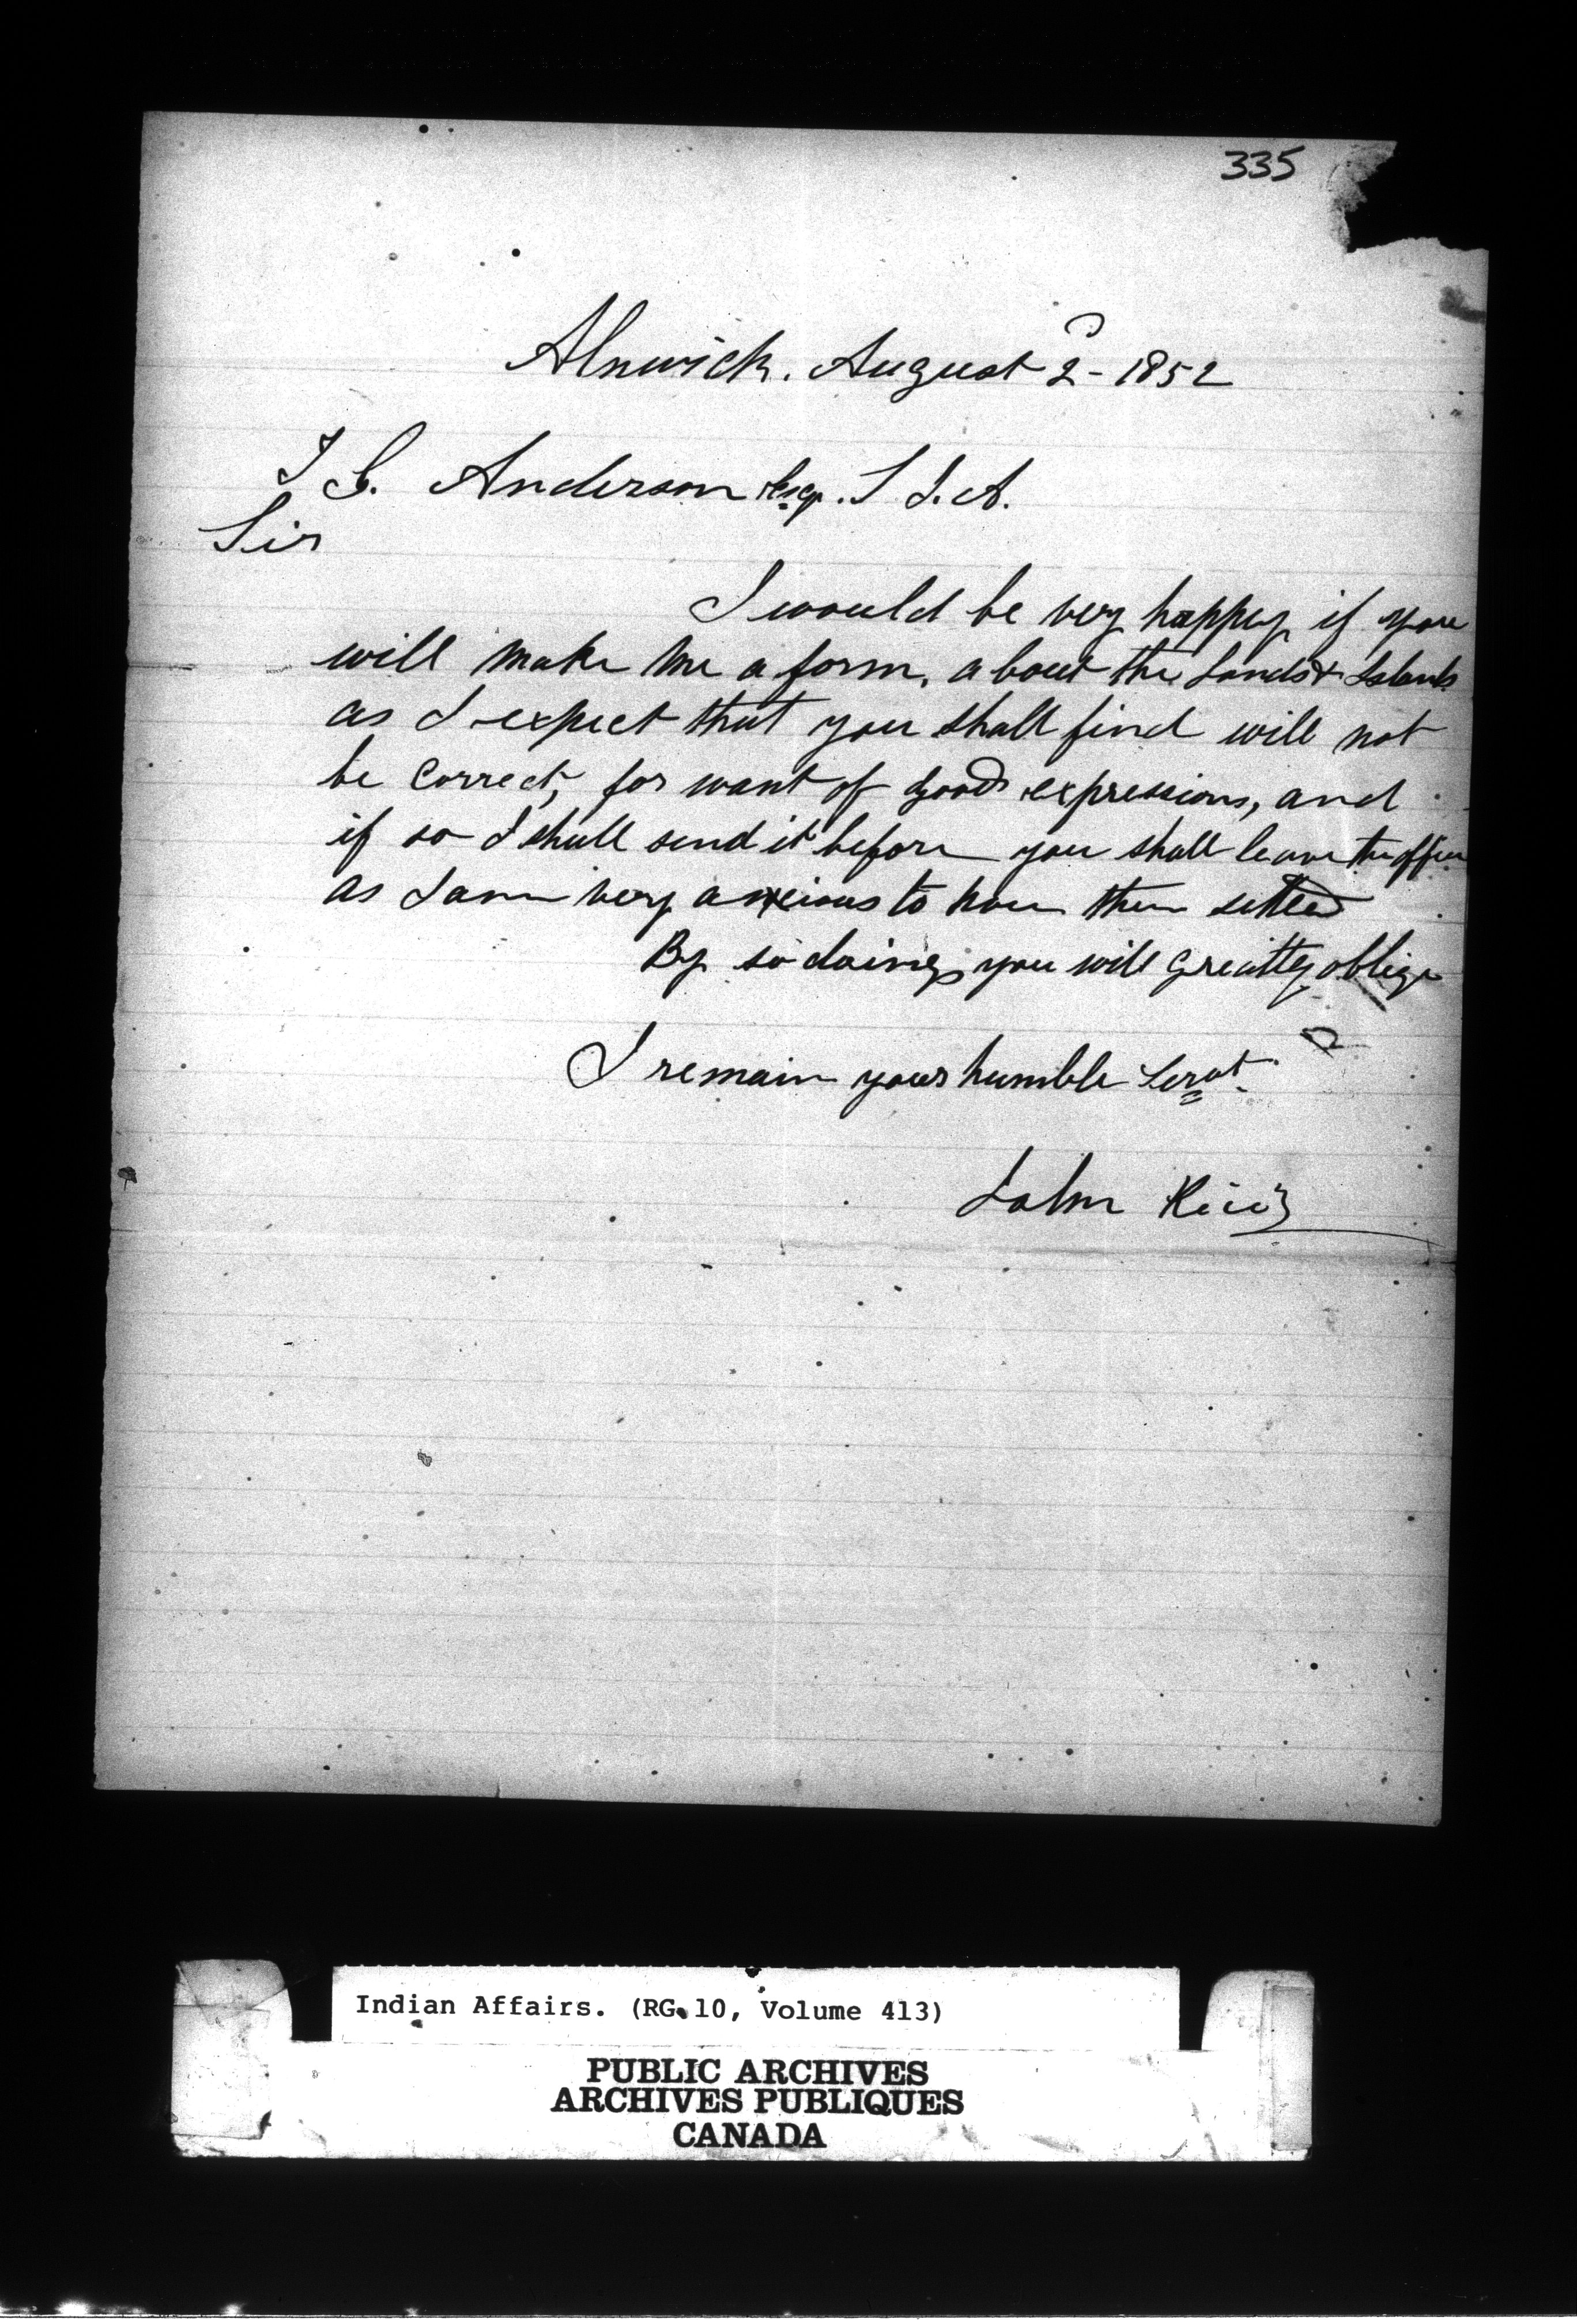 335
Alnwick. August 2d - 1852
T G. Anderson Esqr. S I. A.
Sir
I would be very happy if you
will make me a form, about the Lands & Islands
as I expect that you shall find will not
be correct, for want of good expressions, and
if so I shall send it before you shall leave the office
as I am very anxcious to have them setled
By so doing you will greatly oblige
I remain your humble Servt.
John
Indian Affairs. (RG 10, Volume 413)
PUBLIC ARCHIVES
ARCHIVES PUBLIQUES
CANADA